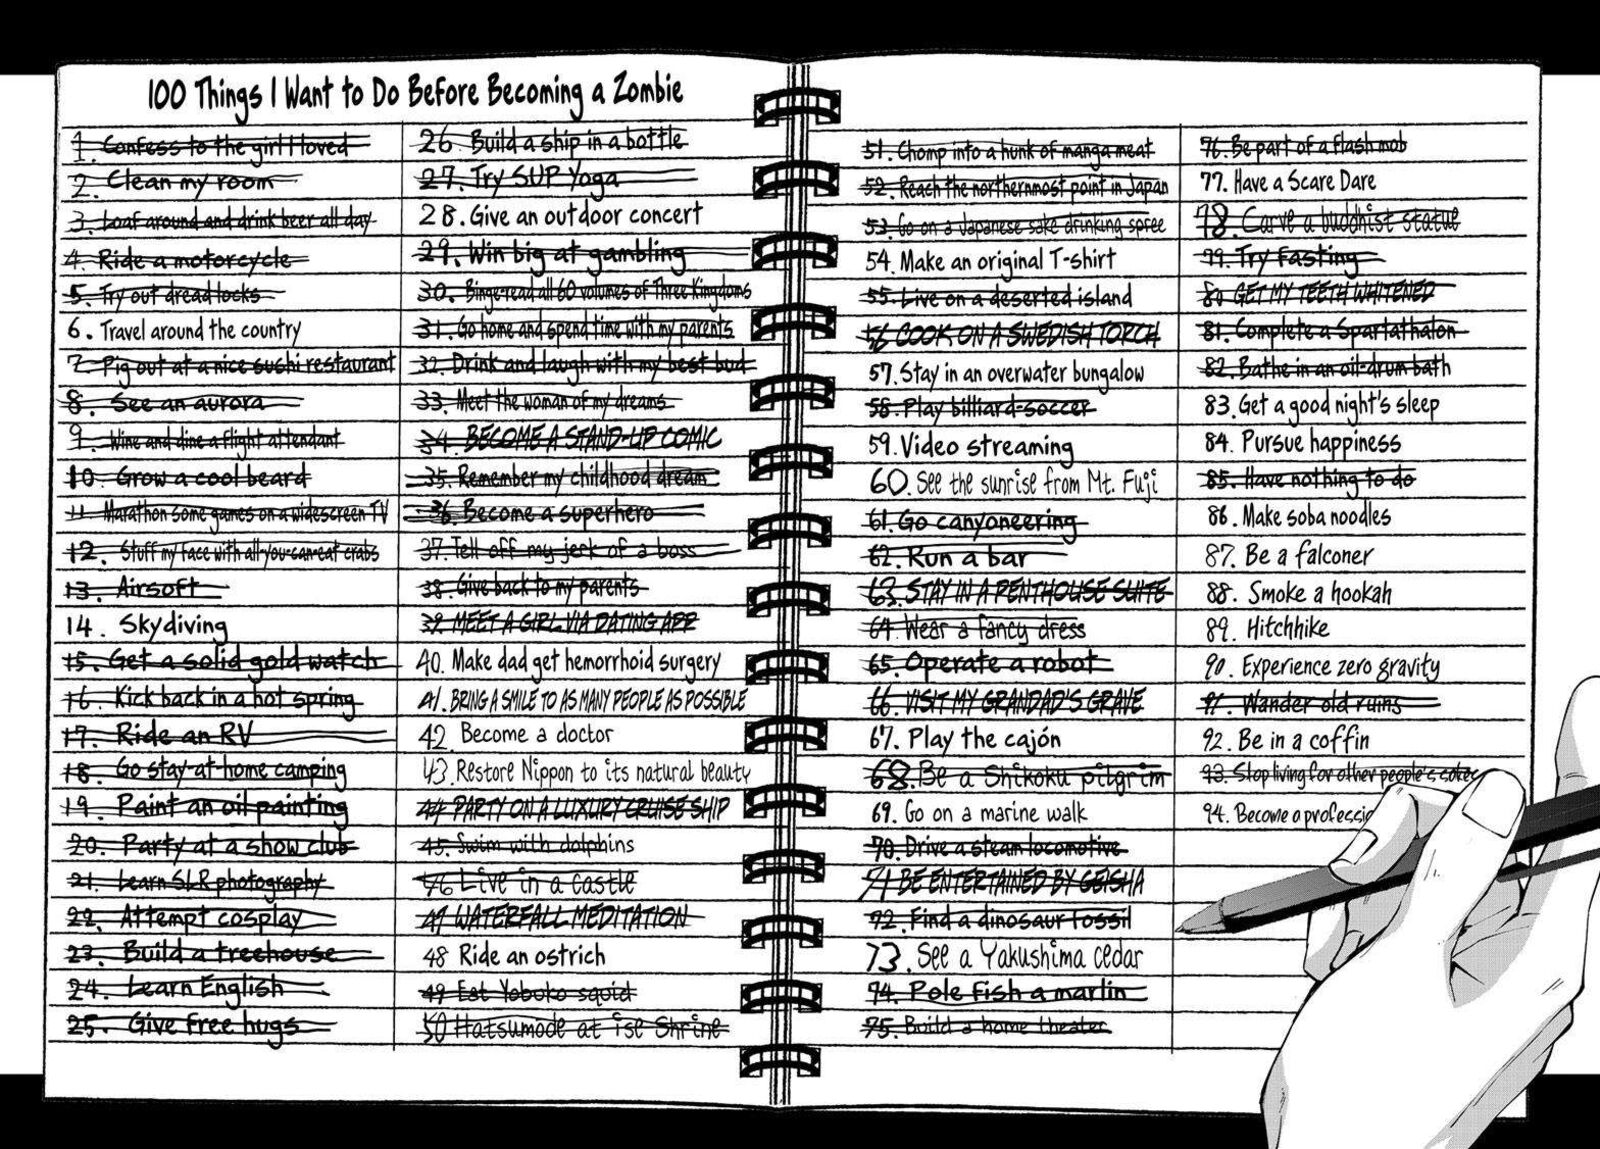 100 Things I Want to Do Before Becoming a Zombie
1. Confess to the girl I loved
2. Clean my room
3. Loaf around and drink beer all day
4. Ride a motorcycle
5. Try out dreadlocks
6. Travel around the country
7. Pig out at a nice sushi restaurant
8. See an aurora
9. Wine and dine a flight attendant
10. Grow a cool beard
11. Marathon some games on a widescreen TV
12. Stuff my face with all-you-can-eat crabs
13. Airsoft
14. Skydiving
15. Get a solid gold watch
16. Kick back in a hot spring
17. Ride an RV
18. Go stay-at-home camping
19. Paint an oil painting
20. Party at a show club
21. Learn SLR photography
22. Attempt cosplay
23. Build a treehouse
24. Learn English
25. Give free hugs
26. Build a ship in a bottle
27. Try SUP Yoga
28. Give an outdoor concert
29. Win big at gambling
30. Binge-read all 60 volumes of Three Kingdoms
31. Go home and spend time with my parents
32. Drink and laugh with my best bud
33. Meet the woman of my dreams
34. BECOME A STAND-UP COMIC
35. Remember my childhood dream
36. Become a superhero
37. Tell off my jerk of a boss
38. Give back to my parents
39. MEET A GIRL VIA DATING APP
40. Make dad get hemorrhoid surgery
41. BRING A SMILE TO AS MANY PEOPLE AS POSSIBLE
42. Become a doctor
43. Restore Nippon to its natural beauty
44 PARTY ON A LUXURY CRUISE SHIP
45. Swim with dolphins
46 Live in a castle
47 WATERFALL MEDITATION
48 Ride an ostrich
49 Eat Yobuko squid
50 Hatsumode at ise Shrine
51. Chomp into a hunk of manga meat
52. Reach the northernmost point in Japan
53. Go on a Japanese sake drinking spree
54. Make an original T-shirt
55. Live on a deserted island
56 COOK ON A SWEDISH TORCH
57. Stay in an overwater bungalow
58. Play billiard-soccer
59. Video streaming
60. See the sunrise from Mt. Fuji
61. Go canyoneering
62. Run a bar
63. STAY IN A PENTHOUSE SUITE
64. Wear a fancy dress
65. Operate a robot
66. VISIT MY GRANDAD'S GRAVE
67. Play the cajón
68. Be a Shikoku pilgrim
69. Go on a marine walk
70. Drive a steam locomotive
71 BE ENTERTAINED BY GEISHA
72. Find a dinosaur fossil
73. See a Yakushima cedar
74. Pole fish a marlin
75. Build a home theater
76. Be part of a flash mob
77. Have a Scare Dare
78. Carve a buddhist statue
79. Try Fasting
80 GET MY TEETH WHITENED
81. Complete a Spartathalon
82. Bathe in an oil-drum bath
83. Get a good night's sleep
84. Pursue happiness
85. Have nothing to do
86. Make soba noodles
87. Be a falconer
88. Smoke a hookah
89. Hitchhike
90. Experience zero gravity
91. Wander old ruins
92. Be in a coffin
93. Stop living for other people's sakes
94. Become a professio